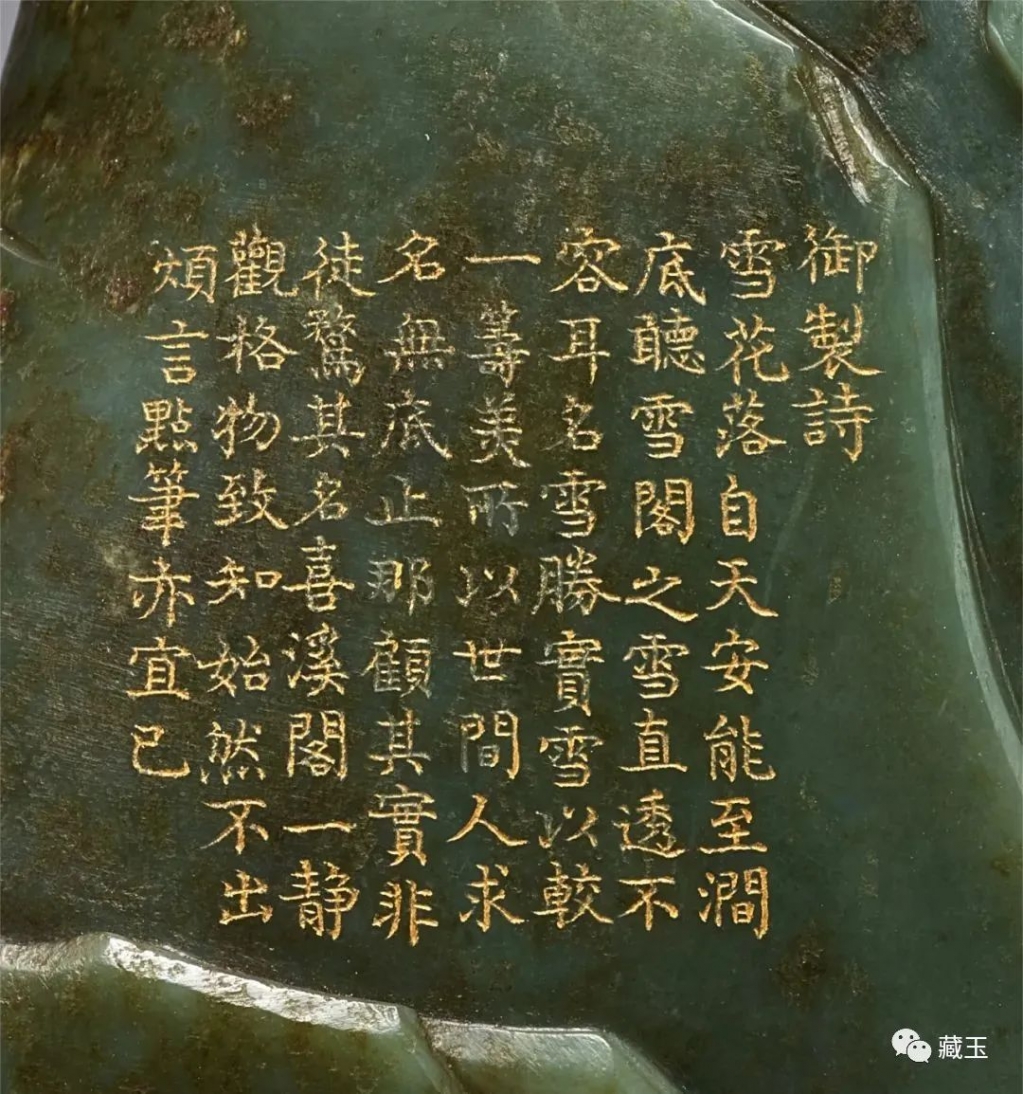 御製詩
雪花落自天安能至澗
底聽雪閣之雪直透不
容耳名雪勝實雪以較
一籌羙所以世間人求
名無底止那顧其實非
徒騖其名喜溪閣一静
觀格物致知始然不出
煩言㸃筆亦宜已
藏玉